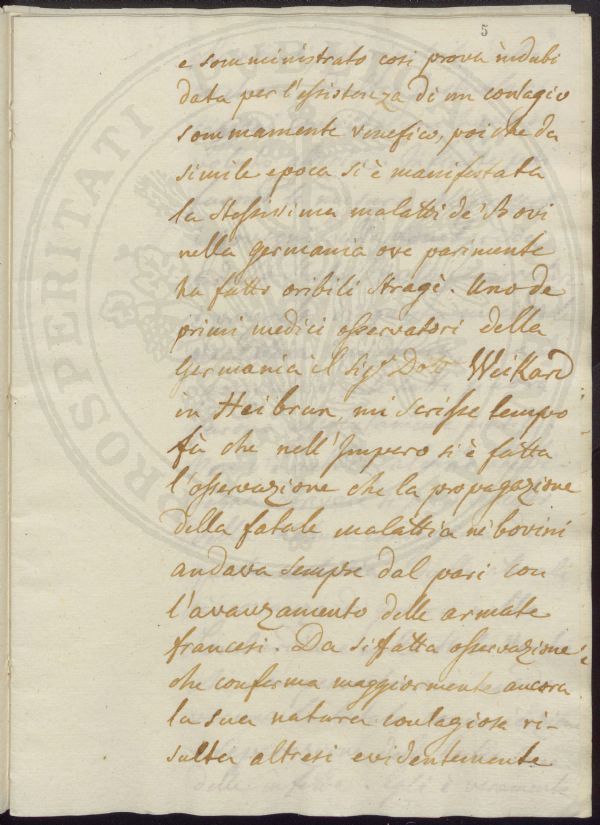 5
e somministrato così prova indubi
data per l'esistenza di un contagio
sommamente venefico, poiche da
simile epoca si è manifestata
la stessissima malattia de' Bovi
nella Germania ove parimente
ha fatto oribili stragi. Uno de
primi medici osservatori della
Germania il Sigr Dottr Weikard
in Heibrun, mi scrisse tempo
fà che nell'Impero si è fatta
l'osservazione che la propagazione
della fatale malattia ne bovini
andava sempre dal pari con
l'avanzamento delle armate
francesi. Da si fatta osservazione
che conferma maggiormente ancora
la sua natura contagiosa ri-
sulta altresi evidentemente
PROSPERITATI PUBLIC